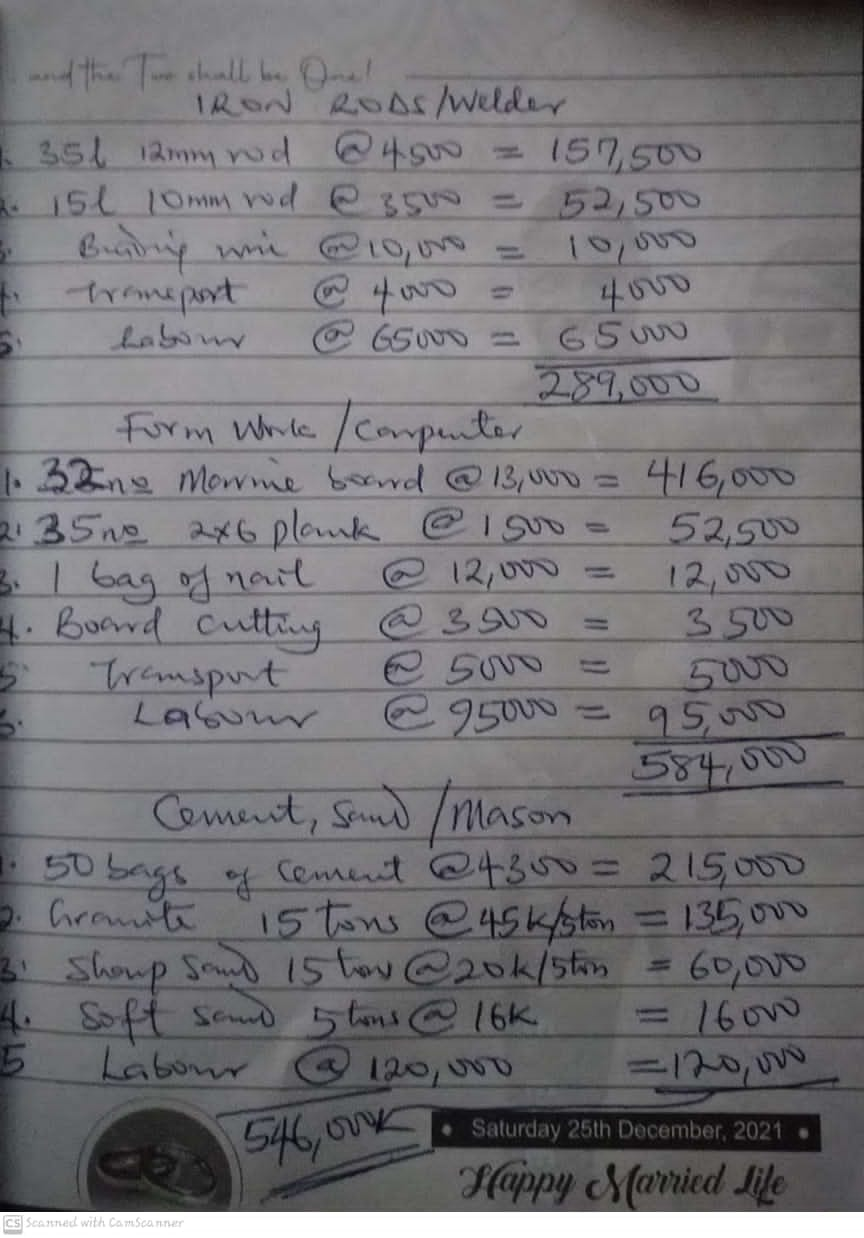 and the Two shall be One!
IRON RODS/Welder
1. 35l 12mm rod @ 4500 = 157,500
2. 15l 10mm rod @ 3500 = 52,500
3. Binding wire @ 10,000 = 10,000
4. Transport @ 4000 = 4000
5. Labour @ 65000 = 65000
289,000
Form Work /Carpenter
1. 32no Marine board @ 13,000 = 416,000
2. 35no 2x6 plank @ 1500 = 52,500
3. 1 bag of nail @ 12,000 = 12,000
4. Board cutting @ 3500 = 3500
5. Transport @ 5000 = 5000
6. Labour @ 95000 = 95,000
584,000
Cement, Sand /Mason
1. 50 bags of cement @ 4300 = 215,000
2. Granite 15 tons @ 45k/5ton = 135,000
3. Sharp Sand 15 tons @ 20k/5ton = 60,000
4. Soft sand 5 tons @ 16k = 16000
5 Labour @ 120,000 = 120,000
546,000K
• Saturday 25th December, 2021 •
Happy Married Life
CS Scanned with CamScanner